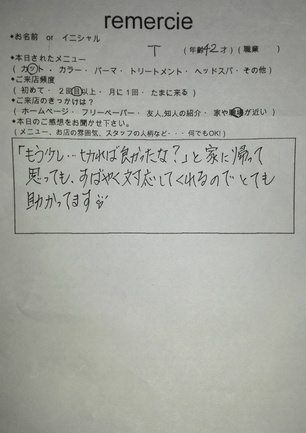 remercie
*お名前 or イニシャル
T (年齢42才) (職業 )
*本日されたメニュー
(カット・カラー・パーマ・トリートメント・ヘッドスパ・その他)
*ご来店頻度
(初めて・2回目以上・月に1回・たまに来る)
*ご来店のきっかけは?
(ホームページ・フリーペーパー・友人,知人の紹介・家や職場が近い)
*本日のご感想をお聞かせ下さい。
(メニュー、お店の雰囲気、スタッフの人柄など・・・何でもOK!)
「もう少し…切れば良かったな?」と家に帰って
思っても、すばやく対応してくれるのでとても
助かってます